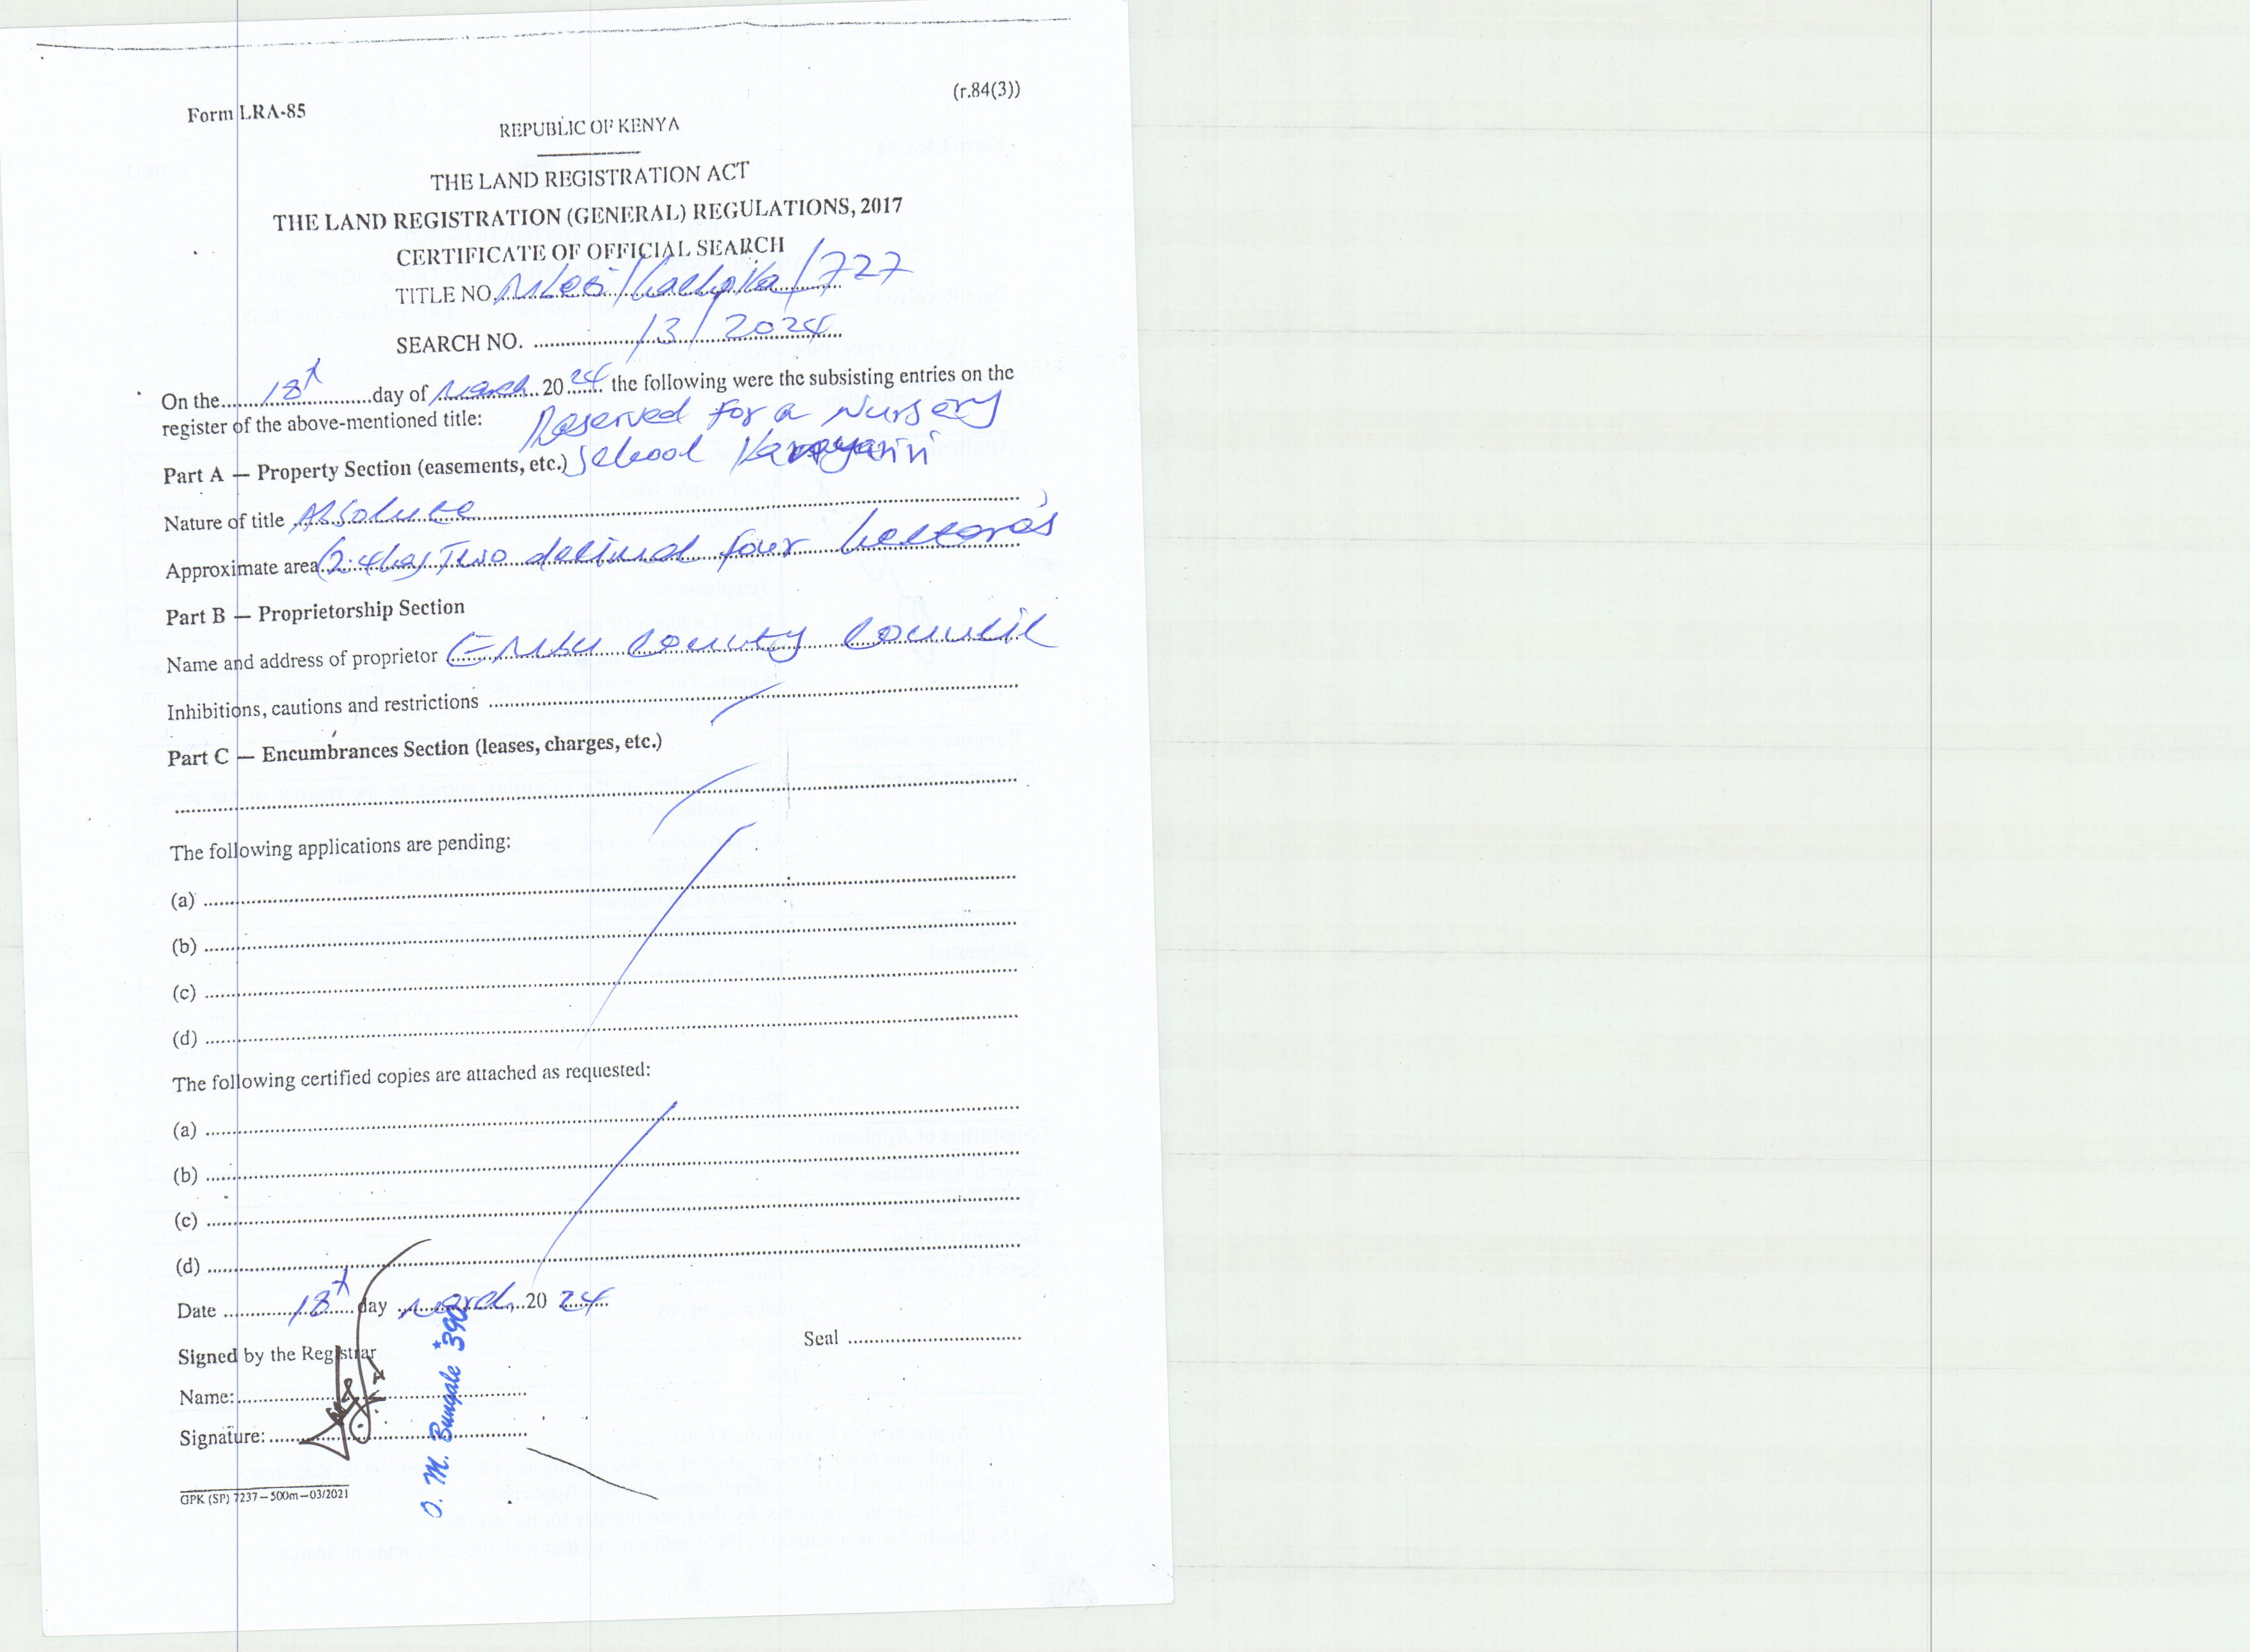 Form LRA-85
(r.84(3))
REPUBLIC OF KENYA
THE LAND REGISTRATION ACT
THE LAND REGISTRATION (GENERAL) REGULATIONS, 2017
CERTIFICATE OF OFFICIAL SEARCH
TITLE NO. /727
SEARCH NO. 13/2024
On the 18th day of March 2024 the following were the subsisting entries on the
register of the above-mentioned title: Reserved for a Nursery
Part A — Property Section (easements, etc.) School
Nature of title Absolute
Approximate area (2.4ha) Two decimal four hectares
Part B — Proprietorship Section
Name and address of proprietor Embu County Council
Inhibitions, cautions and restrictions
Part C — Encumbrances Section (leases, charges, etc.)
The following applications are pending:
(a)
(b)
(c)
(d)
The following certified copies are attached as requested:
(a)
(b)
(c)
(d)
Date 18th day March, 20 24
Signed by the Registrar
Seal
Name:
Signature:
O. M. Bungale *390
GPK (SP) 7237—500m—03/2021